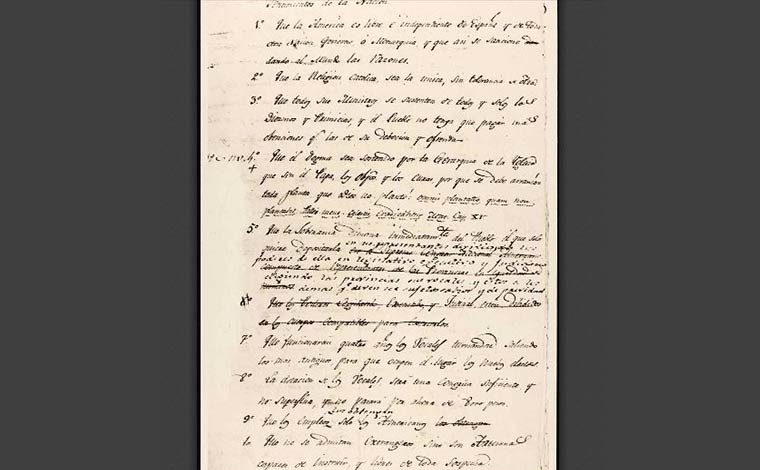 Sentimientos de la Nacion
1.º Que la America es libre é independiente de España y de toda
otra Nacion, Govierno ó Monarquia, y que asi se sancione
dando al Mundo las razones.
2.º Que la Religion Catolica sea la unica, sin tolerancia de otra
3.º Que todos sus Ministros se sustenten de todos y solos los
Diezmos y Primicias, y el Pueblo no tenga que pagar mas
obenciones q.e las de su devocion y ofrenda.
4.º Que el Dogma sea sostenido por la Gerarquia de la Yglesia
que son el Papa, los Obispos, y los Curas por que se debe arrancar
toda planta que Dios no plantó: omnis plantatis quam non
plantabit Pater meus Celestis eradicabitur
5.º Que la Soberania dimana inmediatam.te del Pueblo el que solo
quiere depositarla en sus representantes dividiendo los
poderes de ella en Legislativo executivo y Judiciario
eligiendo las provincias sus vocales y estos a los
demas q.e deven ser sujetos sabios y de providad
7.º Que funcionarán quatro años los Vocales turnandose saliendo
los mas antiguos para que ocupen el lugar los nuevos electos.
8.º La dotacion de los Vocales, será una congrua suficiente y
no superflua, y no pasará por ahora de 8000 pesos.
9.º Que los Empleos los obtengan solo los Americanos
10 Que no se admitan Extrangeros sino son Artesanos
capaces de instruir, y libres de toda sospecha.